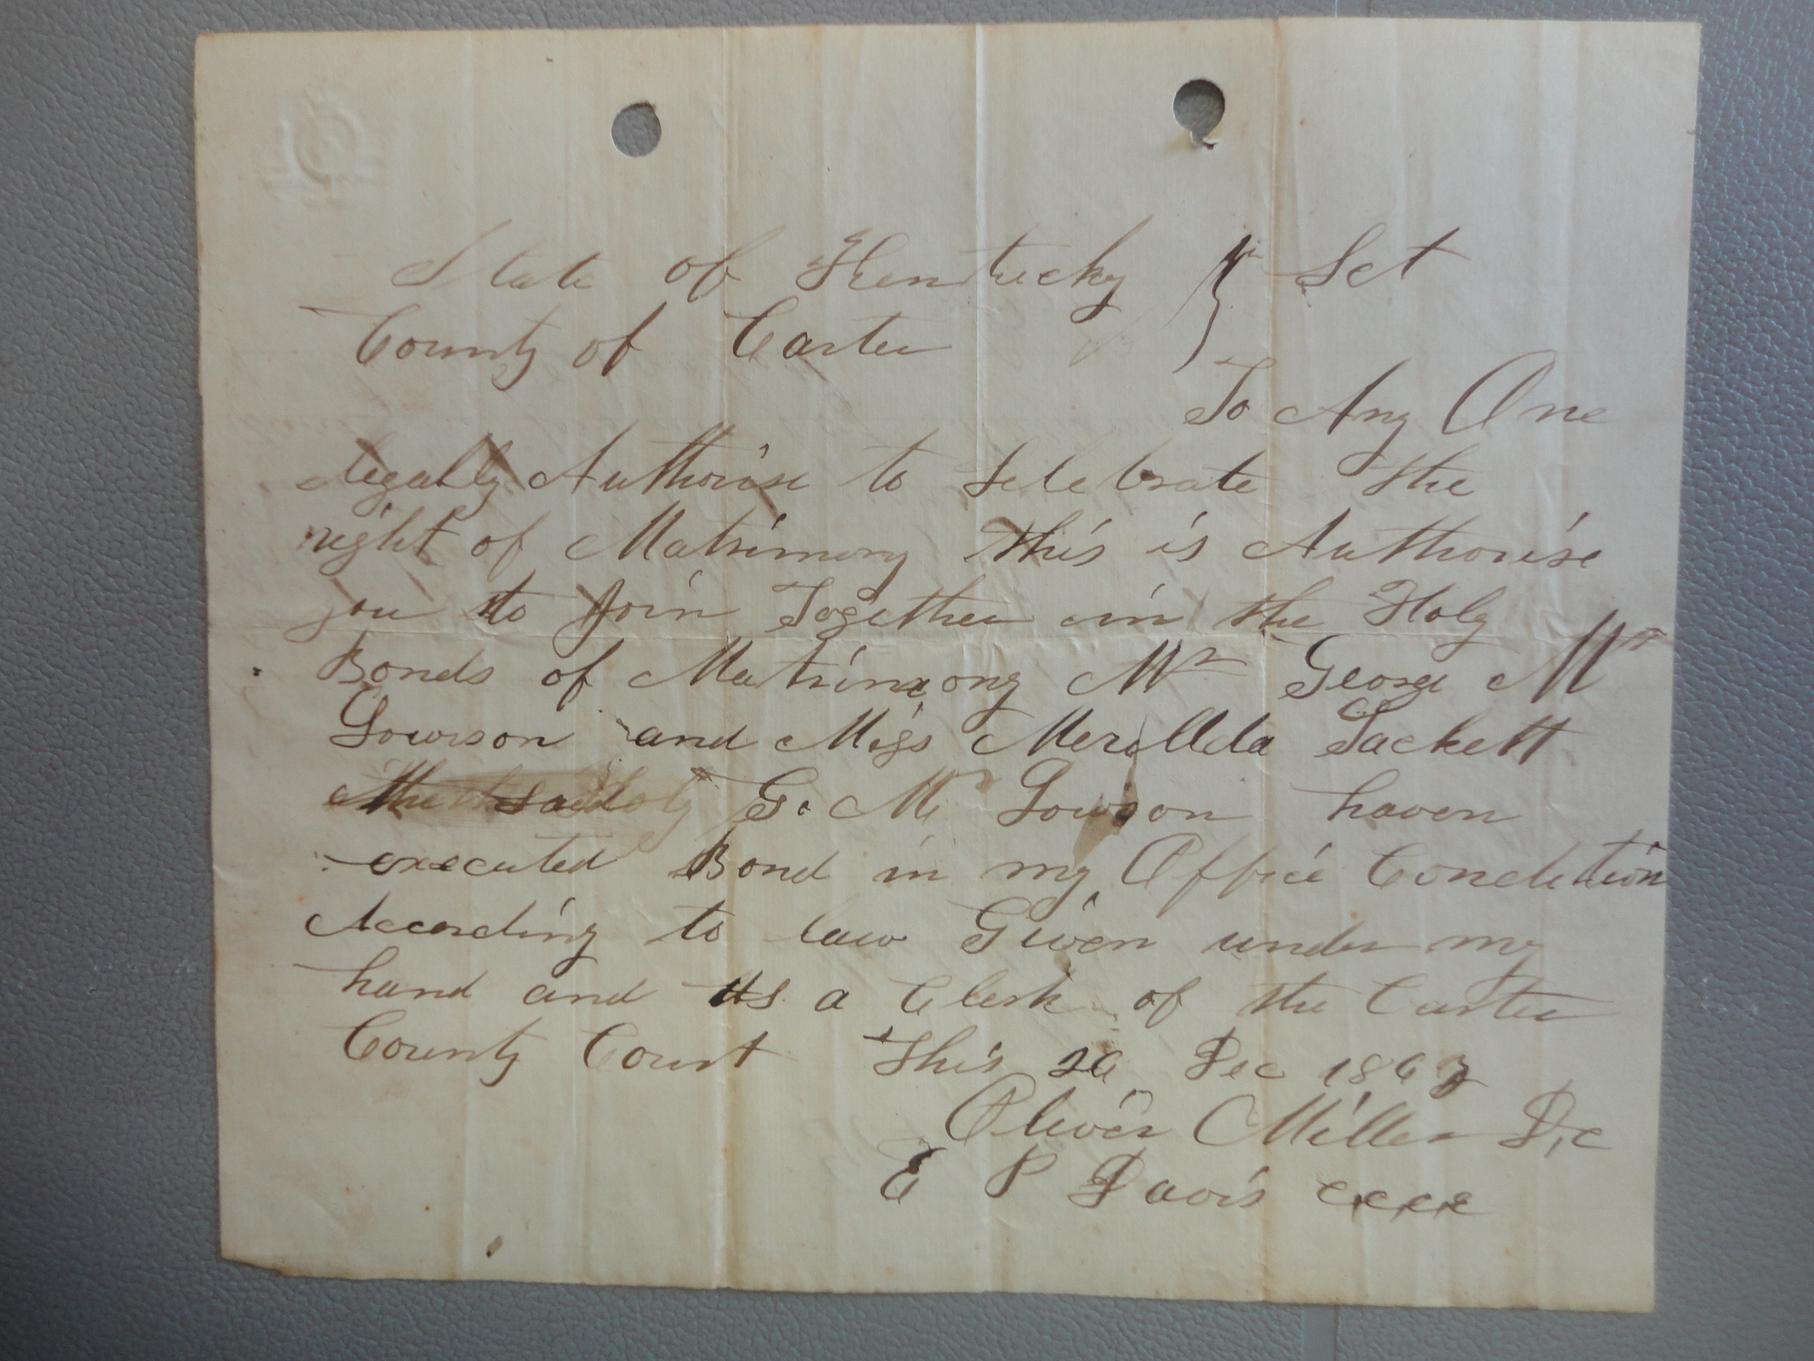 State of Kentucky } Sct
County of Carter
To Any One
legally Authorise to Selebrate the
right of Matrimony this is Authorise
you to Join Together in the Holy
Bonds of Matrimony Mr George Mr
Lowson and Miss Merellda Sackett
the said G. Mr Lowson haven
executed Bond in my Office Condition
According to law Given under my
hand and as a Clerk of the Carter
County Court This Dec
Oliver Miller D,c
E P Davis c,c,c,c